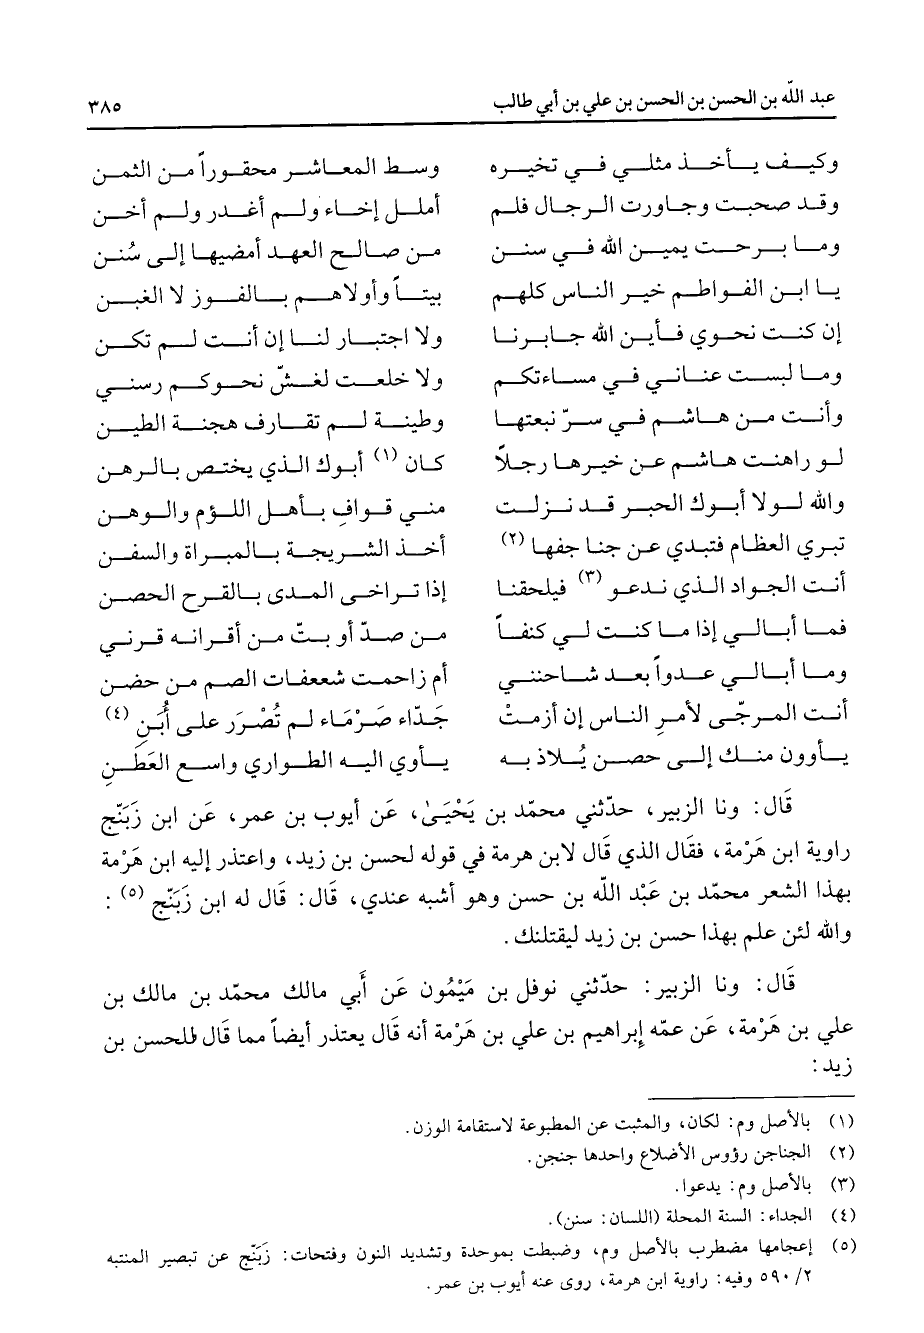 عبد الله بن الحسن بن الحسن بن علي بن أبي طالب ٣٨٥
وكيف يأخذ مثلي في تخيره وسط المعاشر محقوراً من الثمن
وقد صحبت وجاورت الرجال فلم أملل إخاء ولم أغدر ولم أخن
وما برحت يمين الله في سنن من صالح العهد أمضيها إلى سُنن
يا ابن الفواطم خير الناس كلهم بيتاً وأولاهم بالفوز لا الغبن
إن كنت نحوي فأين الله جابرنا ولا اجتبار لنا إن أنت لم تكن
وما لبست عناني في مساءتكم ولا خلعت لغشّ نحوكم رسني
وأنت من هاشم في سرّ نبعتها وطينة لم تقارف هجنة الطين
لو راهنت هاشم عن خيرها رجلاً كان (١) أبوك الذي يختص بالرهن
والله لولا أبوك الحبر قد نزلت مني قوافٍ بأهل اللؤم والوهن
تبري العظام فتبدي عن جنا جفها (٢) أخذ الشريجة بالمبراة والسفن
أنت الجواد الذي ندعو (٣) فيلحقنا إذا تراخى المدى بالقرح الحصن
فما أبالي إذا ما كنت لي كنفاً من صدّ أو بتّ من أقرانه قرني
وما أبالي عدواً بعد شاحنني أم زاحمت شعفات الصم من حضن
أنت المرجّى لأمرِ الناس إن أزمتْ جَدّاء صَرْمَاء لم تُصْرَر على أُبَنِ (٤)
يأوون منك إلى حصن يُلاذ به يأوي اليه الطواري واسع العَطَنِ
قَال: ونا الزبير، حدّثني محمّد بن يَحْيَىٰ، عَن أيوب بن عمر، عَن ابن زَبَنّج
راوية ابن هَرْمة، فقال الذي قَال لابن هرمة في قوله لحسن بن زيد، واعتذر إليه ابن هَرْمة
بهذا الشعر محمّد بن عَبْد الله بن حسن وهو أشبه عندي، قَال: قَال له ابن زَبَنّج (٥):
والله لئن علم بهذا حسن بن زيد ليقتلنك.
قَال: ونا الزبير: حدّثني نوفل بن مَيْمُون عَن أَبي مالك محمّد بن مالك بن
علي بن هَرْمة، عَن عمّه إبراهيم بن علي بن هَرْمة أنه قَال يعتذر أيضاً مما قَال للحسن بن
زيد:
(١) بالأصل وم: لكان، والمثبت عن المطبوعة لاستقامة الوزن.
(٢) الجناجن رؤوس الأضلاع واحدها جنجن.
(٣) بالأصل وم: يدعوا.
(٤) الجداء: السنة المحلة (اللسان: سنن).
(٥) إعجامها مضطرب بالأصل وم، وضبطت بموحدة وتشديد النون وفتحات: زَبَنّج عن تبصير المنتبه
٢/ ٥٩٠ وفيه: راوية ابن هرمة، روى عنه أيوب بن عمر.